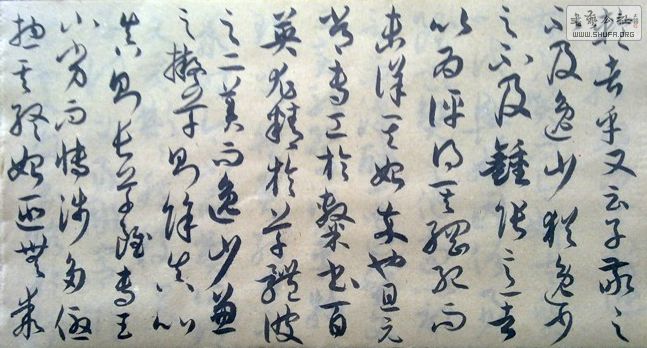 輪者乎又云子敬之
不及逸少猶逸少
之不及鍾張意者
以為評得其綱紀而
未詳其始卒也且元
常專工於隸書百
英尤精於草體彼
之二美而逸少兼
之擬草則餘真比
真則長草雖專工
小劣而博涉多優
總其終始匪無乖
書藝公社
WWW.SHUFA.ORG